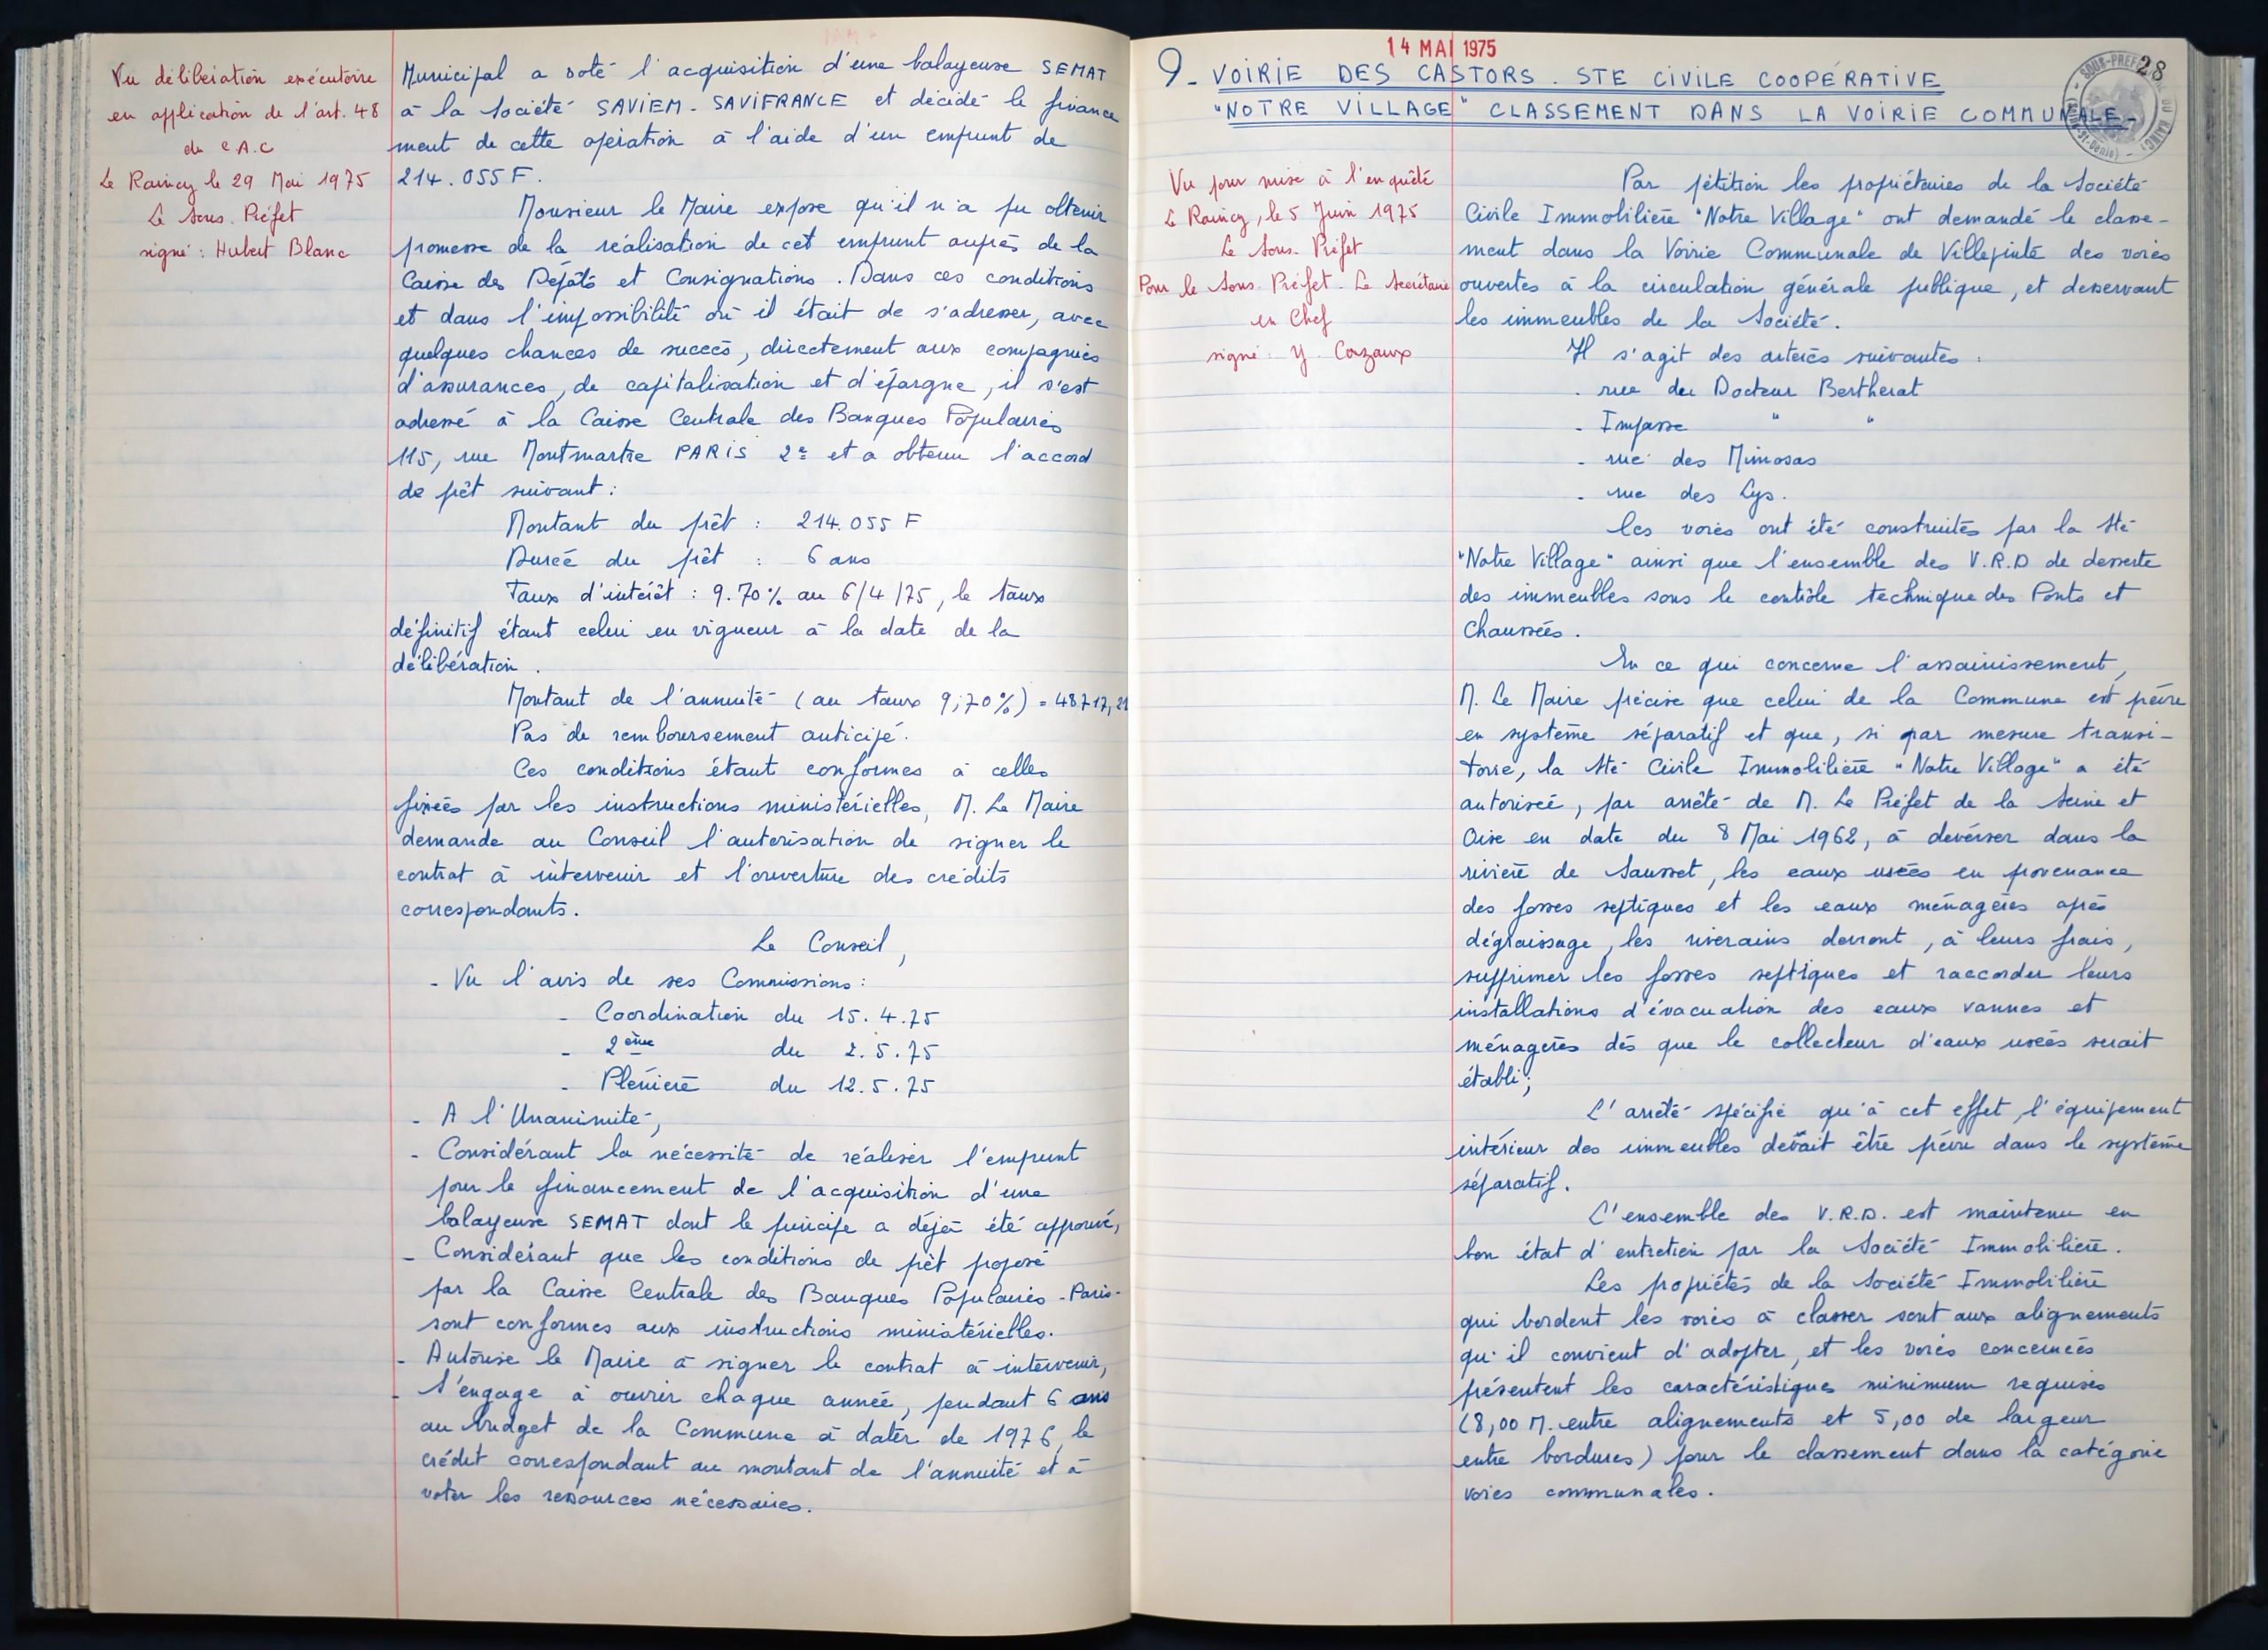 Vu délibération exécutoire
en application de l'art. 48
du C.A.C
Le Raincy le 29 Mai 1975
Le Sous. Préfet
signé : Hubert Blanc
Municipal a voté l'acquisition d'une balayeuse SEMAT
à la Société SAVIEM - SAVIFRANCE et décidé le finance
ment de cette opération à l'aide d'un emprunt de
214.055 F.
Monsieur le Maire expose qu'il n'a pu obtenir
promesse de la réalisation de cet emprunt auprès de la
Caisse des Dépôts et Consignations. Dans ces conditions
et dans l'impossibilité où il était de s'adresser, avec
quelques chances de succès, directement aux compagnies
d'assurances, de capitalisation et d'épargne, il s'est
adressé à la Caisse Centrale des Banques Populaires
115, rue Montmartre PARIS 2e et a obtenu l'accord
de prêt suivant :
Montant du prêt : 214.055 F
Durée du prêt : 6 ans
Taux d'intérêt : 9.70% au 6/4/75, le taux
définitif étant celui en vigueur à la date de la
délibération.
Montant de l'annuité (au taux 9,70%) = 48717,21
Pas de remboursement anticipé.
Ces conditions étant conformes à celles
fixées par les instructions ministérielles, M. Le Maire
demande au Conseil l'autorisation de signer le
contrat à intervenir et l'ouverture des crédits
correspondants.
Le Conseil,
- Vu l'avis de ses Commissions :
- Coordination du 15.4.75
- 2ème du 2.5.75
- Plénière du 12.5.75
- A l'Unanimité,
- Considérant la nécessité de réaliser l'emprunt
pour le financement de l'acquisition d'une
balayeuse SEMAT dont le principe a déjà été approuvé,
- Considérant que les conditions de prêt proposé
par la Caisse Centrale des Banques Populaires - Paris -
sont conformes aux instructions ministérielles.
- Autorise le Maire à signer le contrat à intervenir,
- S'engage à ouvrir chaque année, pendant 6 ans
au budget de la Commune à dater de 1976, le
crédit correspondant au montant de l'annuité et à
voter les ressources nécessaires.
14 MAI 1975
28
9 - VOIRIE DES CASTORS. STE CIVILE COOPÉRATIVE
"NOTRE VILLAGE" CLASSEMENT DANS LA VOIRIE COMMUNALE -
SOUS-PREF DU RAINCY
(Seine-St-Denis)
Vu pour mise à l'enquête
Le Raincy, le 5 Juin 1975
Le Sous. Préfet
Pour le Sous. Préfet. Le Secrétaire
en Chef
signé : Y. Cozaux
Par pétition les propriétaires de la Société
Civile Immobilière "Notre Village" ont demandé le classe-
ment dans la Voirie Communale de Villepinte des voies
ouvertes à la circulation générale publique, et desservant
les immeubles de la Société.
Il s'agit des artères suivantes :
. rue du Docteur Bertherat
- Impasse " "
- rue des Mimosas
- rue des Lys.
Ces voies ont été construites par la Sté
"Notre Village" ainsi que l'ensemble des V.R.D de desserte
des immeubles sous le contrôle technique des Ponts et
Chaussées.
En ce qui concerne l'assainissement,
M. Le Maire précise que celui de la Commune est prévu
en système séparatif et que, si par mesure transi-
toire, la Sté Civile Immobilière "Notre Village" a été
autorisée, par arrêté de M. Le Préfet de la Seine et
Oise en date du 8 Mai 1962, à deverser dans la
rivière de Sausset, les eaux usées en provenance
des fosses septiques et les eaux ménagères après
dégraissage, les riverains devront, à leurs frais,
supprimer les fosses septiques et raccorder leurs
installations d'évacuation des eaux vannes et
ménagères dès que le collecteur d'eaux usées serait
établi ;
L'arrêté spécifie qu'à cet effet, l'équipement
intérieur des immeubles devait être prévu dans le système
séparatif.
L'ensemble des V.R.D. est maintenu en
bon état d'entretien par la Société Immobilière.
Les propriétés de la Société Immobilière
qui bordent les voies à classer sont aux alignements
qu'il convient d'adopter, et les voies concernées
présentent les caractéristiques minimum requises
(8,00 M. entre alignements et 5,00 de largeur
entre bordures) pour le classement dans la catégorie
voies communales.